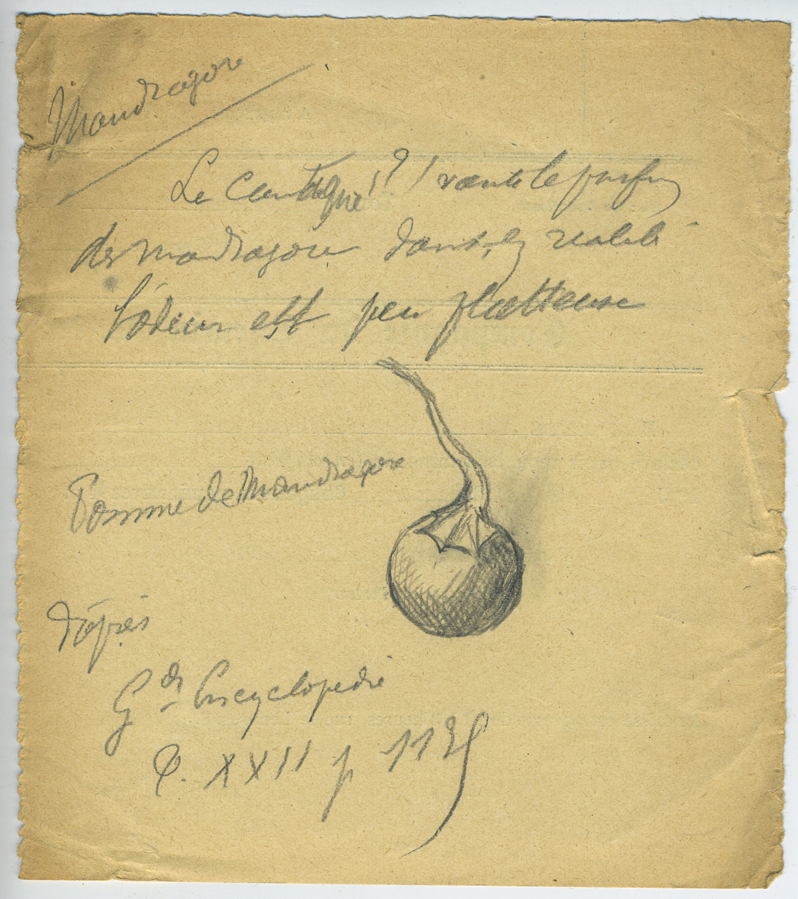 Mandragore
Le Cantique (?) vante le parfum
des mandragores dans la réalité
l'odeur est peu flatteuse
Pomme de Mandragore
d'après
Gde Encyclopédie
T. XXII p